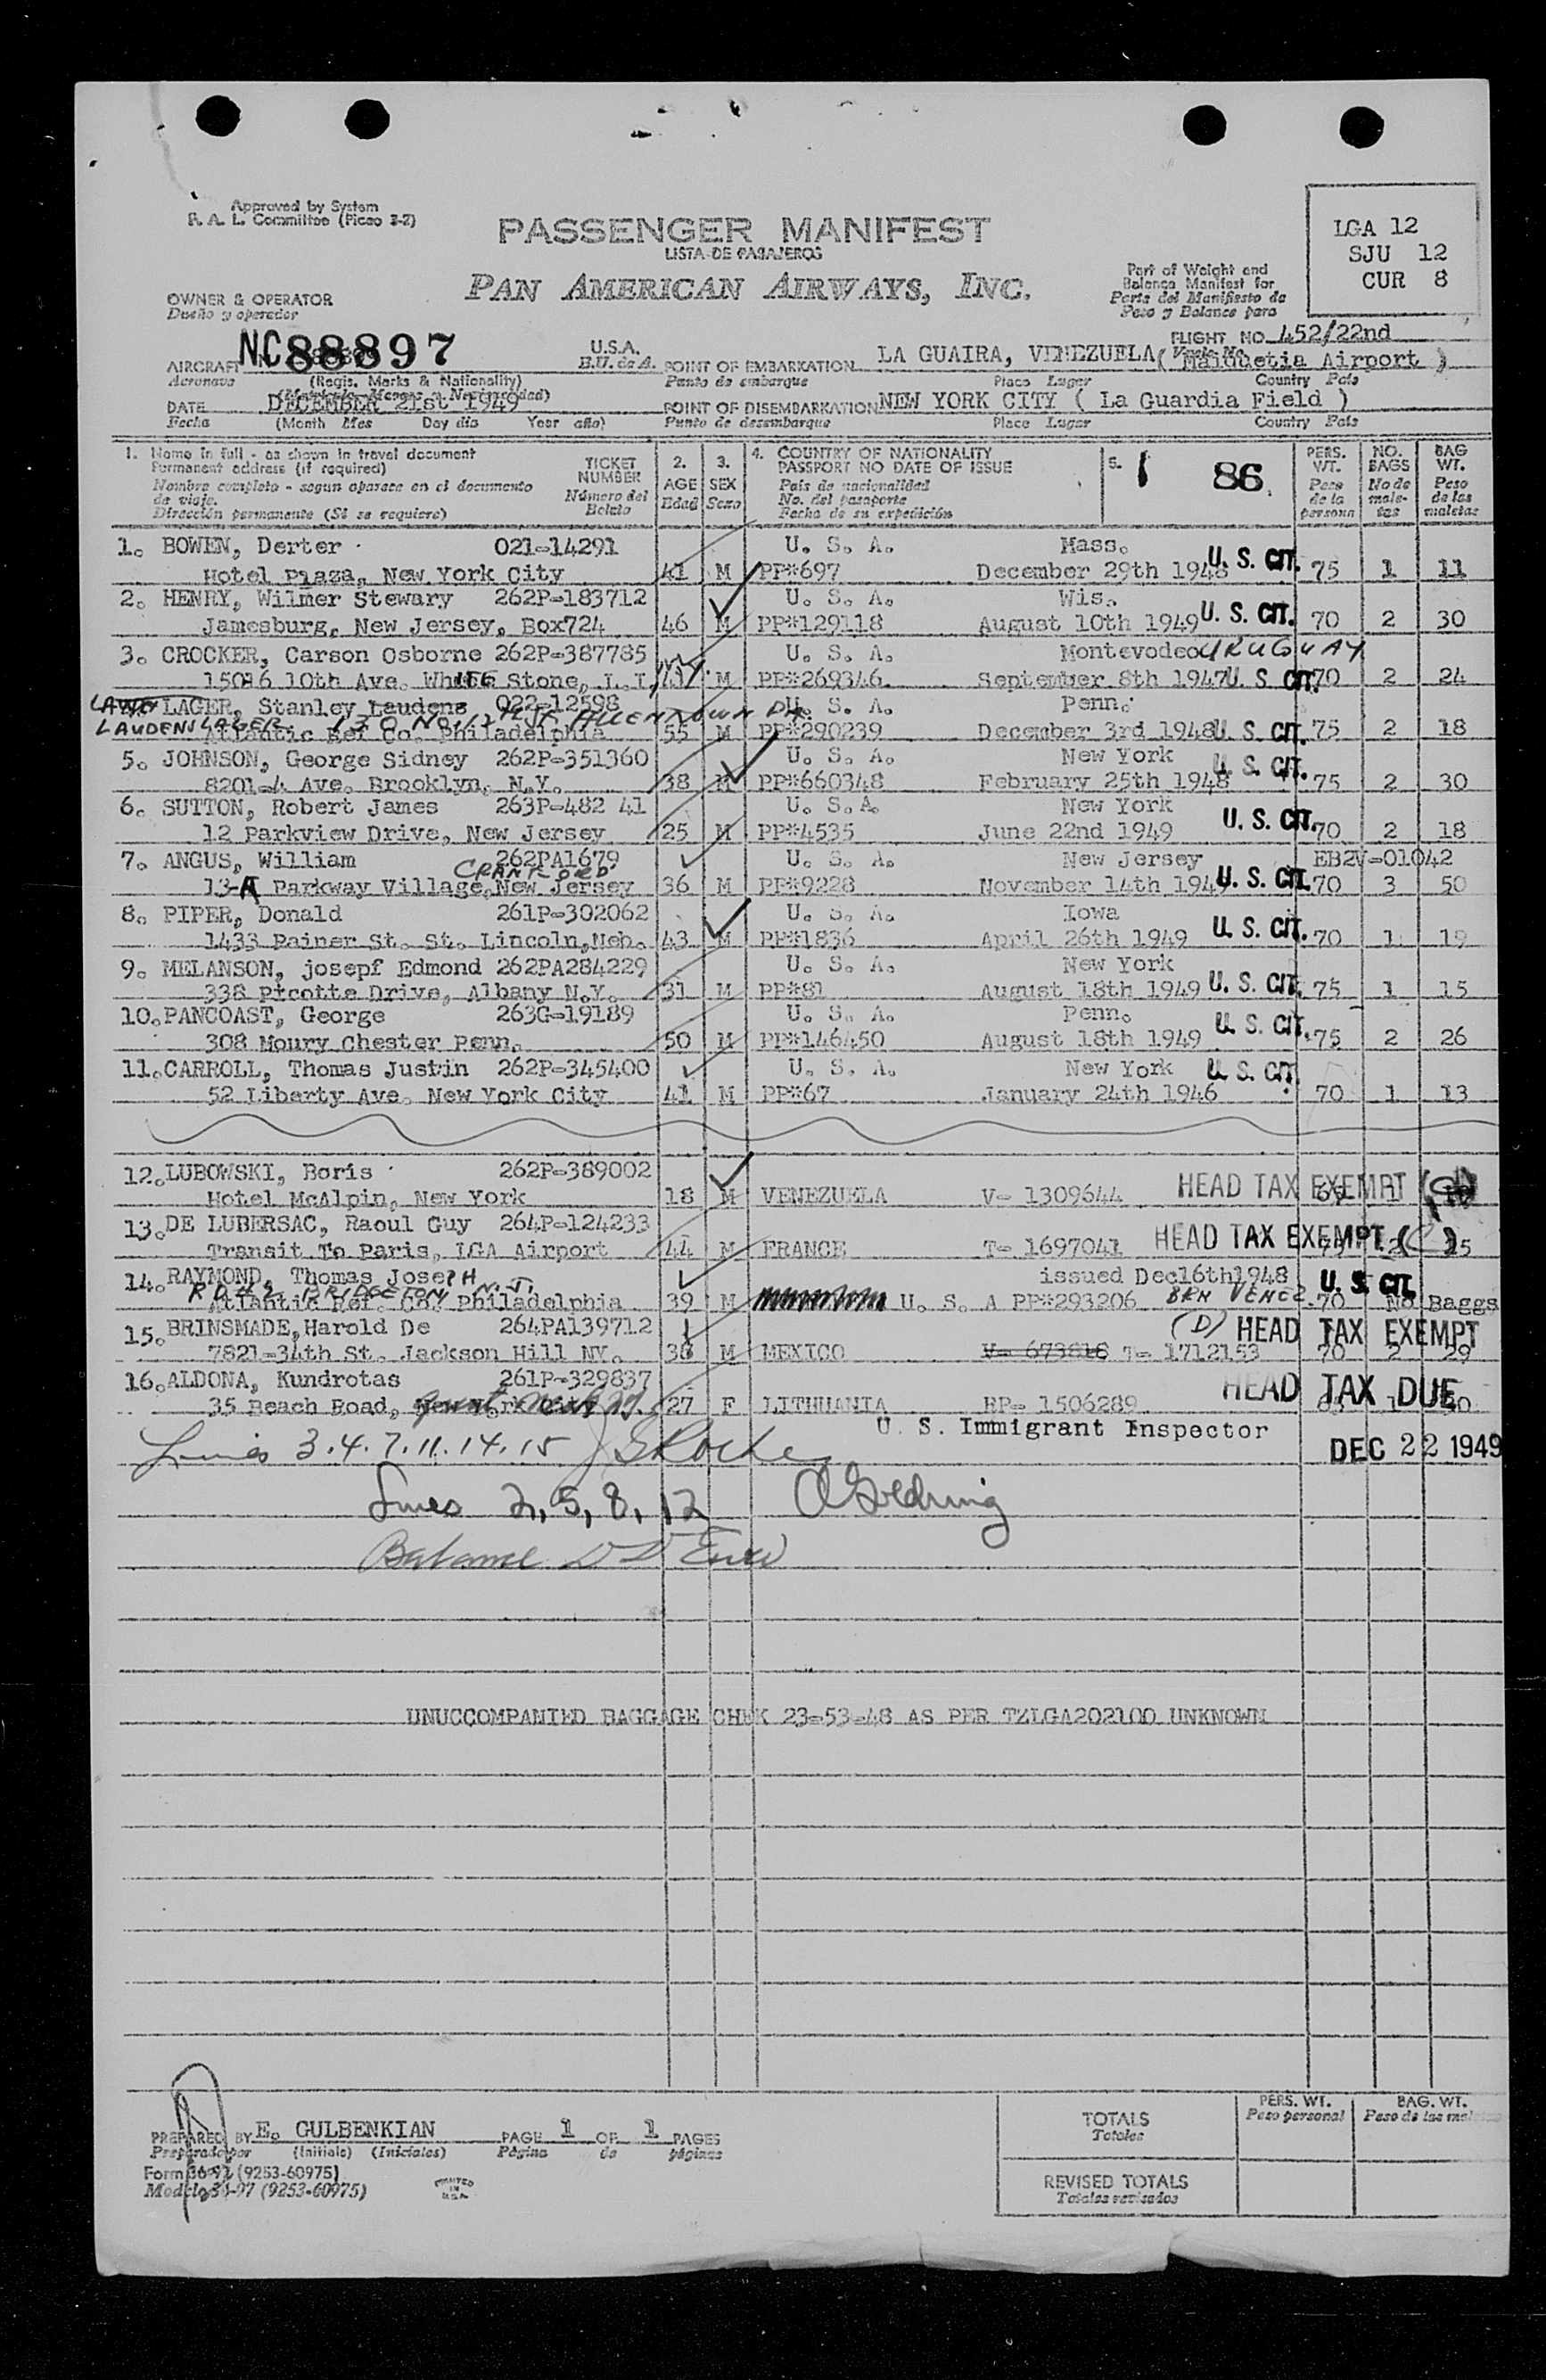 Approved by System
R. A. L. Committee (Picao 3-2)
PASSENGER MANIFEST
LISTA DE PASAJEROS
PAN AMERICAN AIRWAYS, INC.
LGA 12
SJU 12
CUR 8
Part of Weight and
Balance Manifest for
Parte del Manifiesto de
Peso y Balance para
OWNER & OPERATOR
Dueño y operador
FLIGHT NO 452/22nd
AIRCRAFT NC88897 U.S.A. POINT OF EMBARKATION LA GUAIRA, VENEZUELA ( Maiquetia Airport )
Aeronave (Regis. Marks & Nationality) E.U. de A. Punto de embarque Place Lugar Country País
DATE DECEMBER 21st 1949 POINT OF DISEMBARKATION NEW YORK CITY ( La Guardia Field )
Fecha (Month Mes Day día Year año) Punto de desembarque Place Lugar Country País
1. Name in full - as shown in travel document
Permanent address (if required)
Nombre completo - segun aparece en el documento
de viaje.
Dirección permanente (Si se requiere)
TICKET
NUMBER
Número del
Boleto
2.
AGE
Edad
3.
SEX
Sexo
4. COUNTRY OF NATIONALITY
PASSPORT NO DATE OF ISSUE
País de nacionalidad
No. del pasaporte
Fecha de su expedición
5. 1 86
PERS.
WT.
Peso
de la
persona
NO.
BAGS
No de
male-
tas
BAG
WT.
Peso
de las
maletas
1. BOWEN, Derter 021-14291 U. S. A. Mass.
Hotel Plaza, New York City 41 M PP#697 December 29th 1948 U. S. CIT. 75 1 11
2. HENRY, Wilmer Stewary 262P-183712 U. S. A. Wis.
Jamesburg, New Jersey, Box724 46 M PP#129118 August 10th 1949 U. S. CIT. 70 2 30
3. CROCKER, Carson Osborne 262P-387785 U. S. A. Montevodeo URUGUAY
15016 10th Ave. White Stone, L.I. M PP#269346 September 8th 1947 U. S. CIT. 70 2 24
LAGER, Stanley Laudens 022-12598 U. S. A. Penn.
LAUDENSLAGER 130 No. 12th St ALLENTOWN PA
Atlantic Ref Co. Philadelphia 55 M PP#290239 December 3rd 1948 U. S. CIT. 75 2 18
5. JOHNSON, George Sidney 262P-351360 U. S. A. New York
8201-4 Ave. Brooklyn, N.Y. 38 M PP#660348 February 25th 1948 U. S. CIT. 75 2 30
6. SUTTON, Robert James 263P-482 41 U. S.A. New York
12 Parkview Drive, New Jersey 25 M PP#4535 June 22nd 1949 U. S. CIT. 70 2 18
7. ANGUS, William 262PA1679 U. S. A. New Jersey EB2V-01042
CRANFORD
13-A Parkway Village, New Jersey 36 M PP#9228 November 14th 1949 U. S. CIT. 70 3 50
8. PIPER, Donald 261P-302062 U. S. A. Iowa
1433 Rainer St. St. Lincoln, Neb. 43 M PP#1836 April 26th 1949 U. S. CIT. 70 1 19
9. MELANSON, josepf Edmond 262PA284229 U. S. A. New York
338 Picotte Drive, Albany N.Y. 31 M PP#81 August 18th 1949 U. S. CIT. 75 1 15
10. PANCOAST, George 263G-19189 U. S. A. Penn.
308 Moury Chester Penn. 50 M PP#146450 August 18th 1949 U. S. CIT. 75 2 26
11. CARROLL, Thomas Justin 262P-345400 U. S. A. New York U. S. CIT.
52 Liberty Ave. New York City 41 M PP#67 January 24th 1946 70 1 13
12. LUBOWSKI, Boris 262P-389002
Hotel McAlpin, New York 18 M VENEZUELA V- 1309644 HEAD TAX EXEMPT 1
13. DE LUBERSAC, Raoul Guy 264P-124233
Transit To Paris, LGA Airport 44 M FRANCE T- 1697041 HEAD TAX EXEMPT (C)
14. RAYMOND, Thomas Joseph issued Dec16th1948 U. S. CIT.
BRIDGETON N.J.
Atlantic Ref. Co. Philadelphia 39 M U. S. A PP#293206 BRN VENEZ. 70 No Baggs
15. BRINSMADE, Harold De 264PA139712 (D) HEAD TAX EXEMPT
7821-34th St. Jackson Hill NY. M MEXICO V- 673818 T- 1712153 70 2 29
16. ALDONA, Kundrotas 261P-329837 HEAD TAX DUE
35 Beach Road, 27 F LITHUANIA RP- 1506289 1
U. S. Immigrant Inspector
Lines 3.4.7.11.14.15
DEC 22 1949
Lines 2, 5, 8, 12
Balance
UNUCCOMPANIED BAGGAGE CHEK 23-53-48 AS PER TZLGA202100 UNKNOWN
PREPARED BY E. GULBENKIAN PAGE 1 OF 1 PAGES
Preparado por (Initials) (Iniciales) Página de páginas
Form 36-97 (9253-60975)
Modelo 36-97 (9253-60975)
PRINTED
IN
U.S.A.
PERS. WT.
Peso personal
BAG. WT.
TOTALS
Totales
REVISED TOTALS
Totales revisados